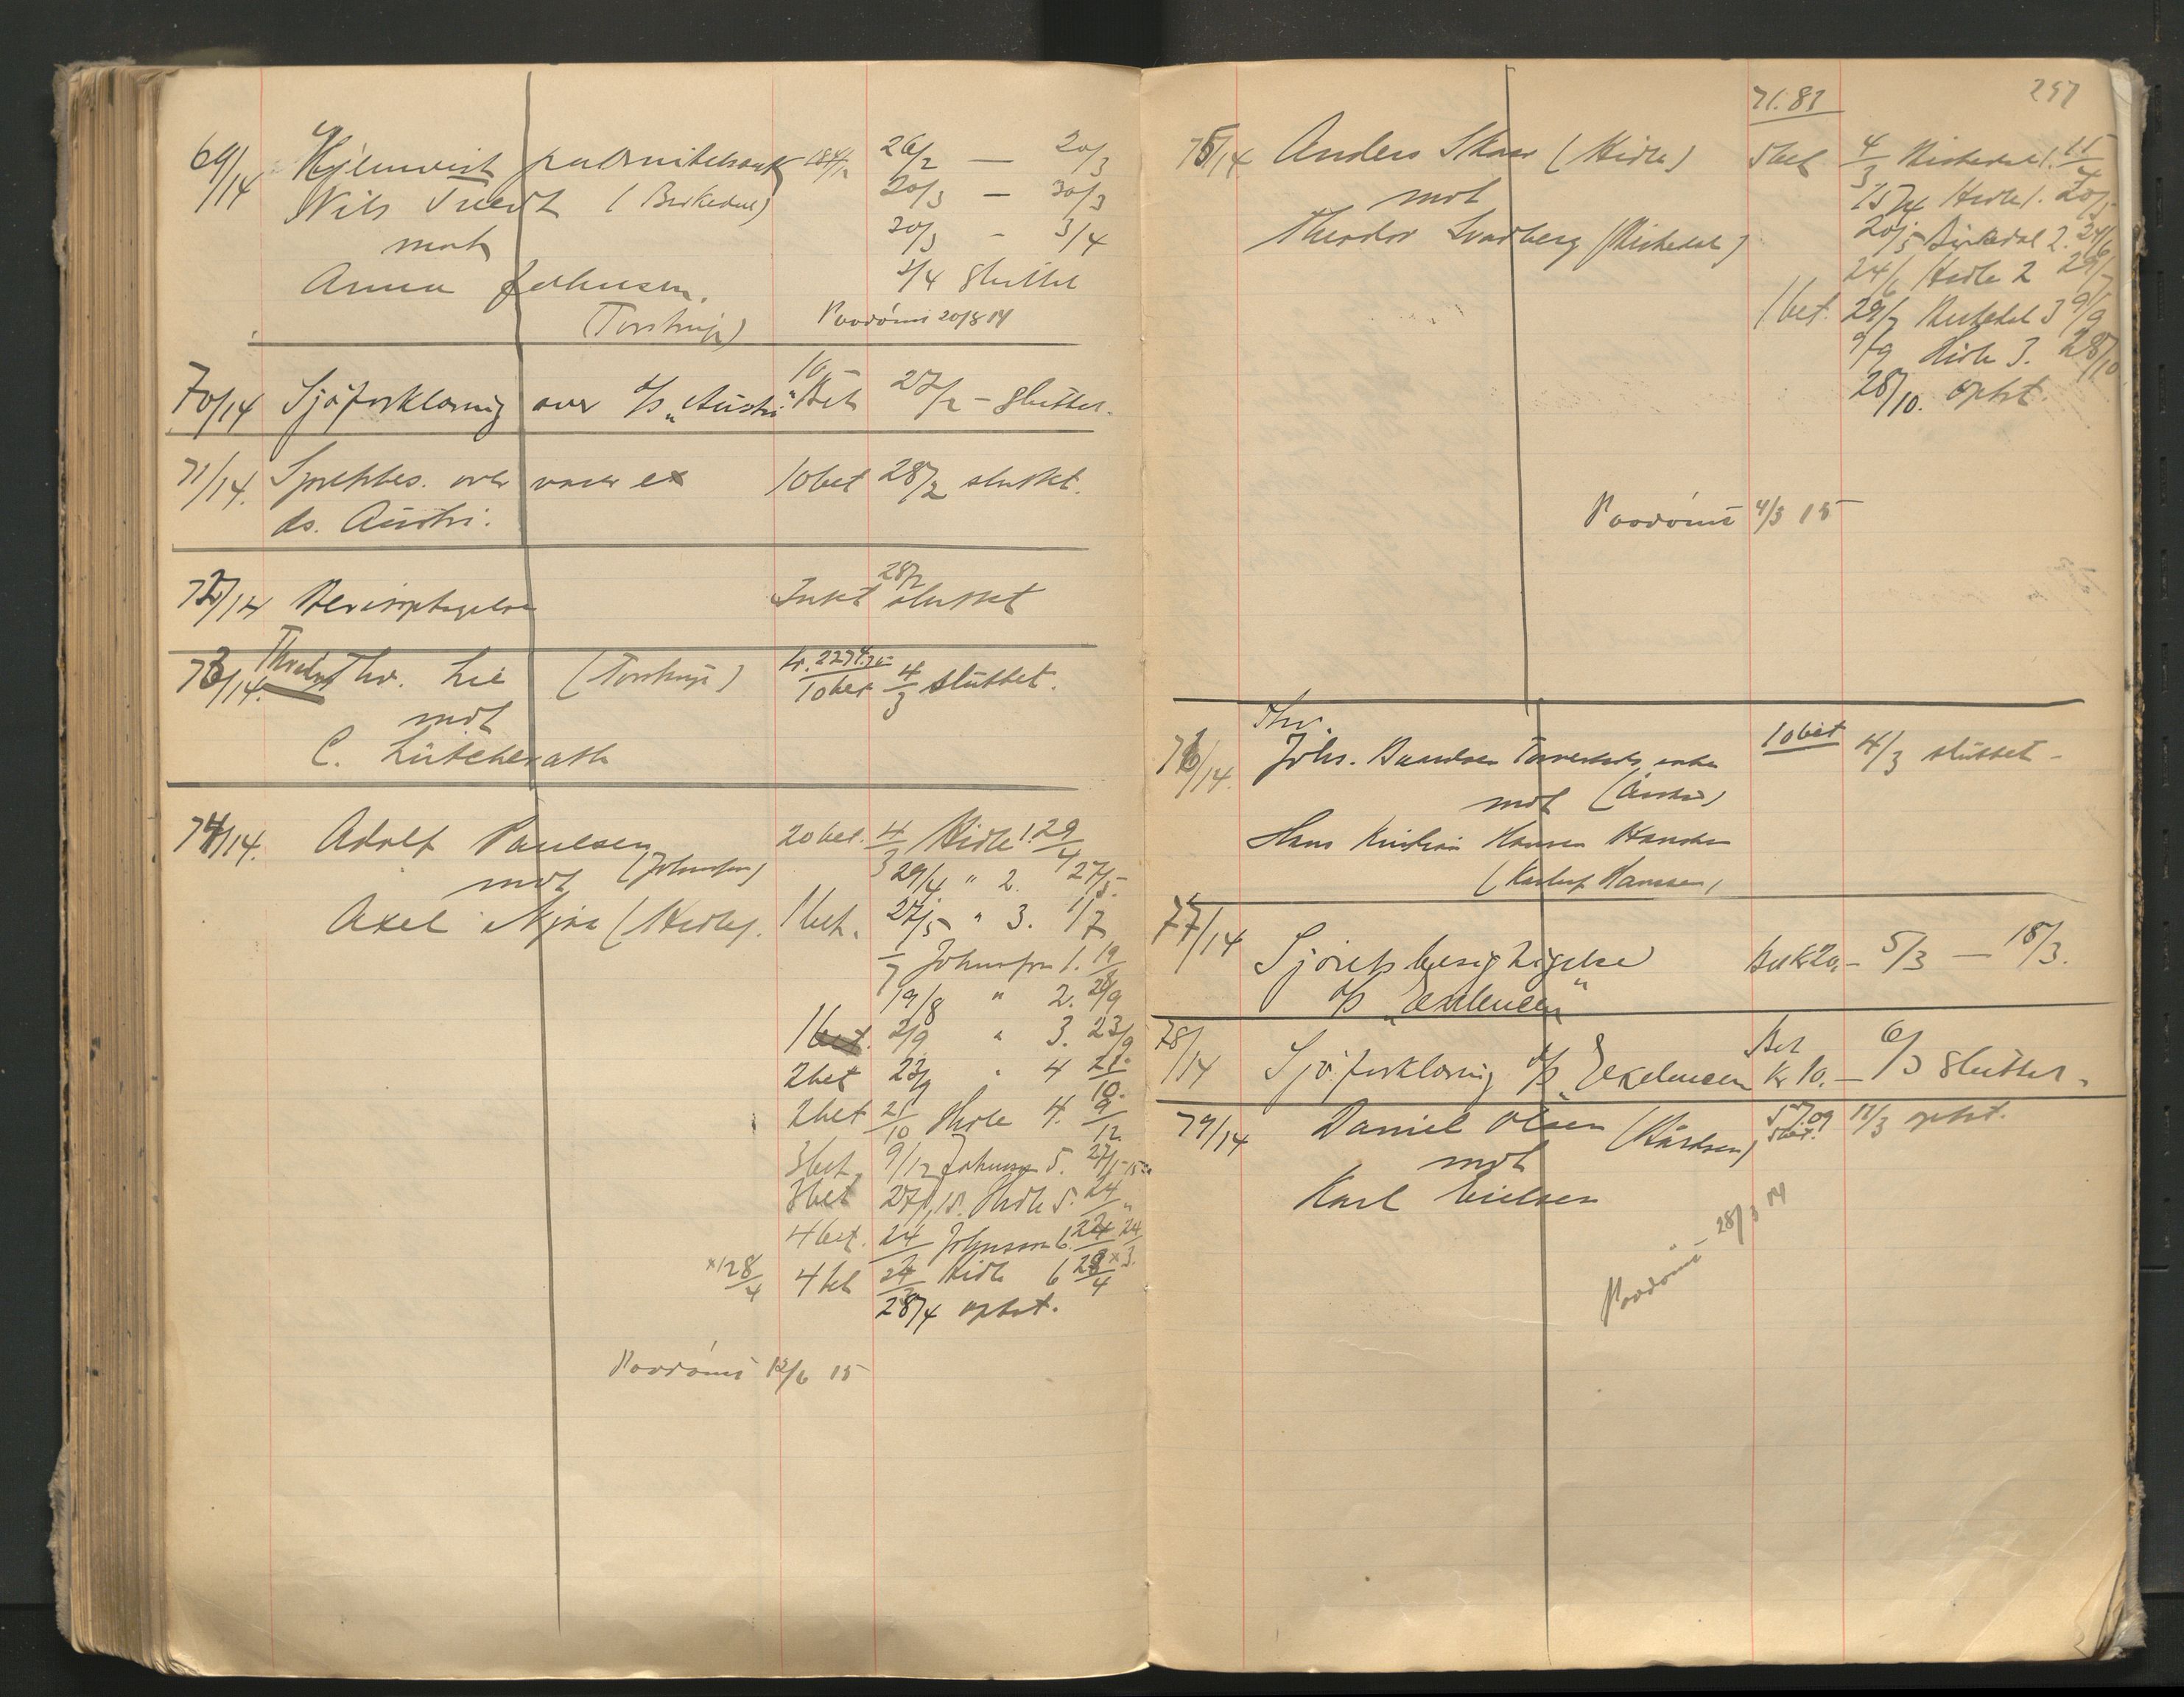 69/14 Nils Tvedt (Birkedal) 26/2 — 20/3
20/3 — 30/3
mot 30/3 - 3/4
Anna Johnsen. 3/4 sluttet
(Torstrup) Paadömt 20/8 14
70/14 Sjöforklaring over d/s "Austri" 10 bet 27/2 - sluttet.
71/14. over varer ex 10 bet 28/2 sluttet.
ds. Austri.
72/14 Bevisoptagelse 28/2 sluttet
73/14. Thv. Lie (Torstrup) kr. 2274.70 10 bet 4/3 sluttet.
mot
C. Lütcherath
74/14. Adolf Paulsen 20 bet. 4/3 Hidle 1. 29/4
mot (Johnsen) 29/4 " 2. 27/5
Axel (Hidle). 1 bet. 27/5 " 3. 1/7
1/7 Johnsen 1. 19/8
19/8 " 2. 2/9
1 bet. 2/9 " 3. 23/9
2 bet 23/9 " 4 21/10
2 bet 21/10 Hidle 4. 9/12
3 bet 9/12 Johnsen 5. 27/1-15
3 bet 27/1 15. Hidle 5. 24/
4 bet. 24/ Johnson 6. 24/ 24/3.
x) 28/4 4 bet 24/3 Hidle 6 28/4 x
28/4 optat.
Paadömt 12/6 15
297
71.83
75/14 Anders Skaar (Hidle) 5 bet 4/3 Birkedal 1. 15/4
mot 15/4 Hidle 1. 20/5
Theodor Svadberg (Birkedal) 20/5 Birkedal 2. 24/6
24/6 Hidle 2 29/7
1 bet. 29/7 Birkedal 3 9/9
9/9 Hidle 3. 28/10
28/10. optat.
Paadömt 4/3 15
Thv.
76/14. Johs. enke 10 bet 4/3 sluttet -
mot
Hans Kristian Hansen
(Hanssen)
77/14 Sjöretsbesigtigelse Bet kr 20,- 5/3 — 18/3.
d/s "Exelencen"
78/14 Sjöforklaring d/s Exelencen Bet Kr 10.- 6/3 sluttet.
79/14 Daniel Olsen 5 bet. 11/3 optat.
mot
Karl Nielsen
Paadömt 28/3 14